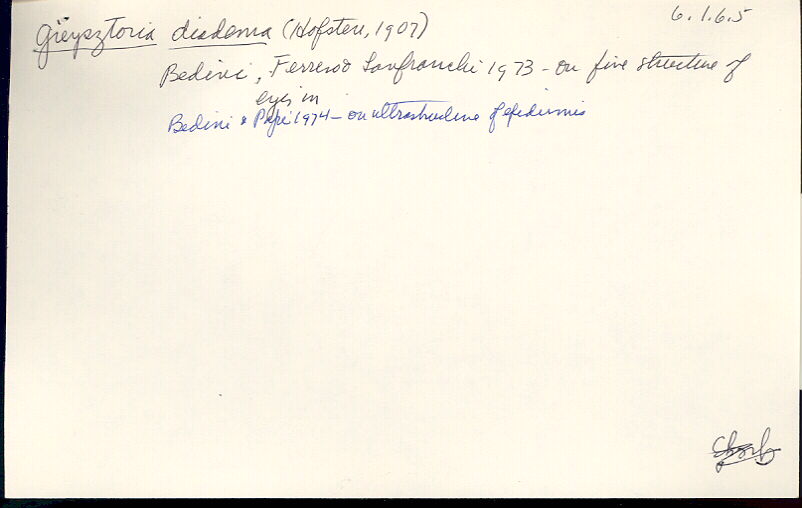 Gieysztoria diadema (Hofsten, 1907)
6.1.6.5
Bedini, Ferrero & Lanfranchi 1973 - on fine structure of
eyes in
Bedini & Papi 1974 - on ultrastructure of epidermis